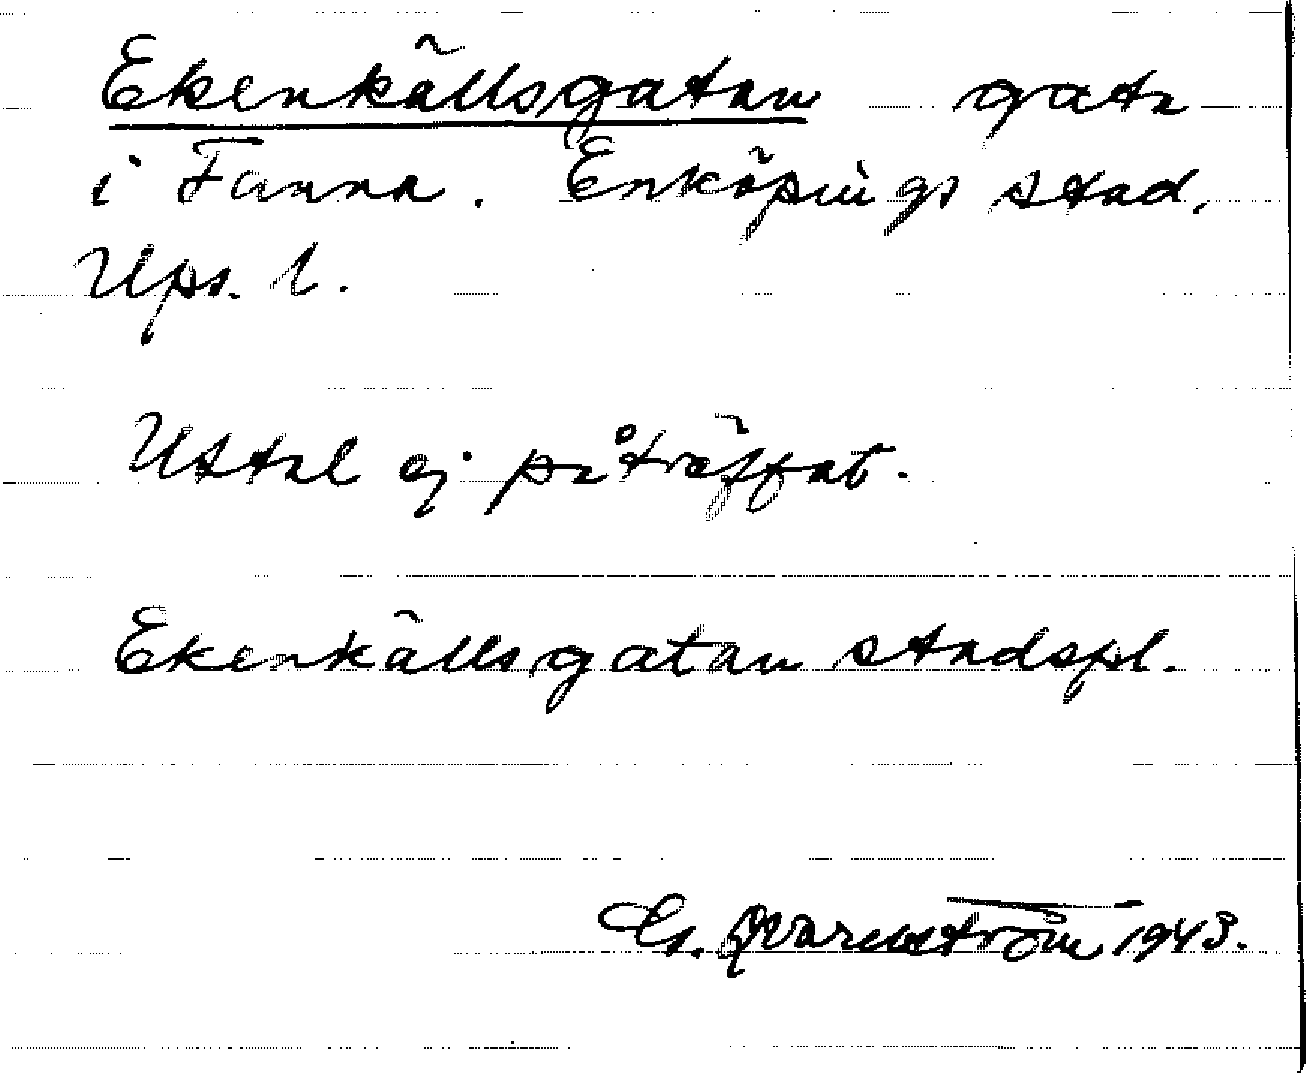 Ekenkällsgatan gata
i Fanna. Enköpings stad,
Ups. l.
Uttal ej påträffat.
Ekenkällsgatan stadspl.
Qvarnström 1943.